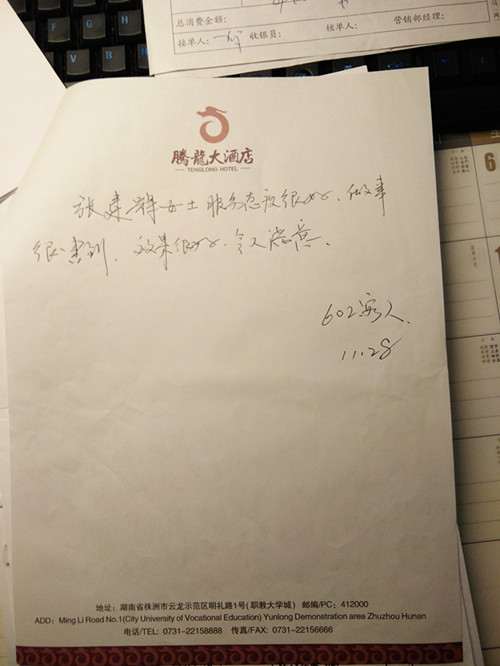 总消费金额:
接单人: 收银员: 核单人: 营销部经理:
F G H
V B N
6
腾龍大酒店
TENGLONG HOTEL
张建辉女士服务态度很好、做事
很周到、效果很好、令人满意。
602客人.
11.28
地址: 湖南省株洲市云龙示范区明礼路1号(职教大学城) 邮编/PC: 412000
ADD: Ming Li Road No.1(City University of Vocational Education) Yunlong Demonstration area Zhuzhou Hunan
电话/TEL: 0731-22158888 传真/FAX: 0731-22156666